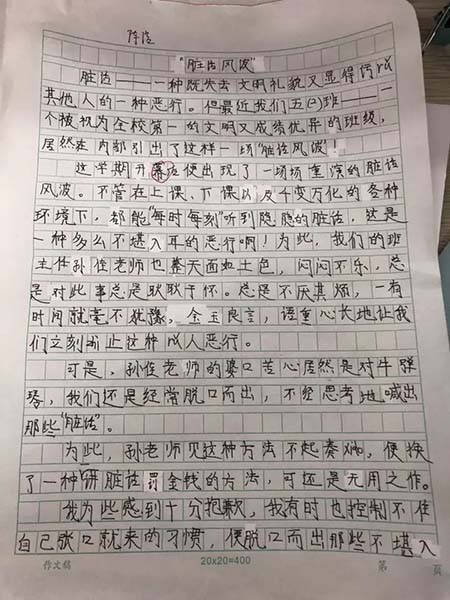 陈洁
“脏话风波”
脏话——一种既失去文明礼貌又显得污rǔ
其他人的一种恶行。但最近我们五(一)班——一
个被视为全校第一的文明又成绩优异的班级，
居然在内部引出了这样一场“脏话风波！
这学期开幕后便出现了一场场重演的脏话
风波。不管在上课、下课以及千变万化的各种
环境下，都能“每时每刻”听到隐隐的脏话，这是
一种多么不堪入耳的恶行啊！为此，我们的班
主任孙佺老师也整天面如土色，闷闷不乐，总
是对此事总是耿耿于怀。总是不厌其烦，一有
时间就毫不犹豫，金玉良言，语重心长地让我
们立刻断止这种成人恶行。
可是，孙佺老师的婆口苦心居然是对牛弹
琴，我们还是经常脱口而出，不经思考地喊出
那些“脏话”。
为此，孙老师见这种方法不起奏效，便换
了一种讲脏话罚金钱的方法，可还是无用之作。
我为些感到十分抱歉，我有时也控制不住
自己张口就来的习惯，便脱口而出那些不堪入
作文稿 20x20=400 第 页